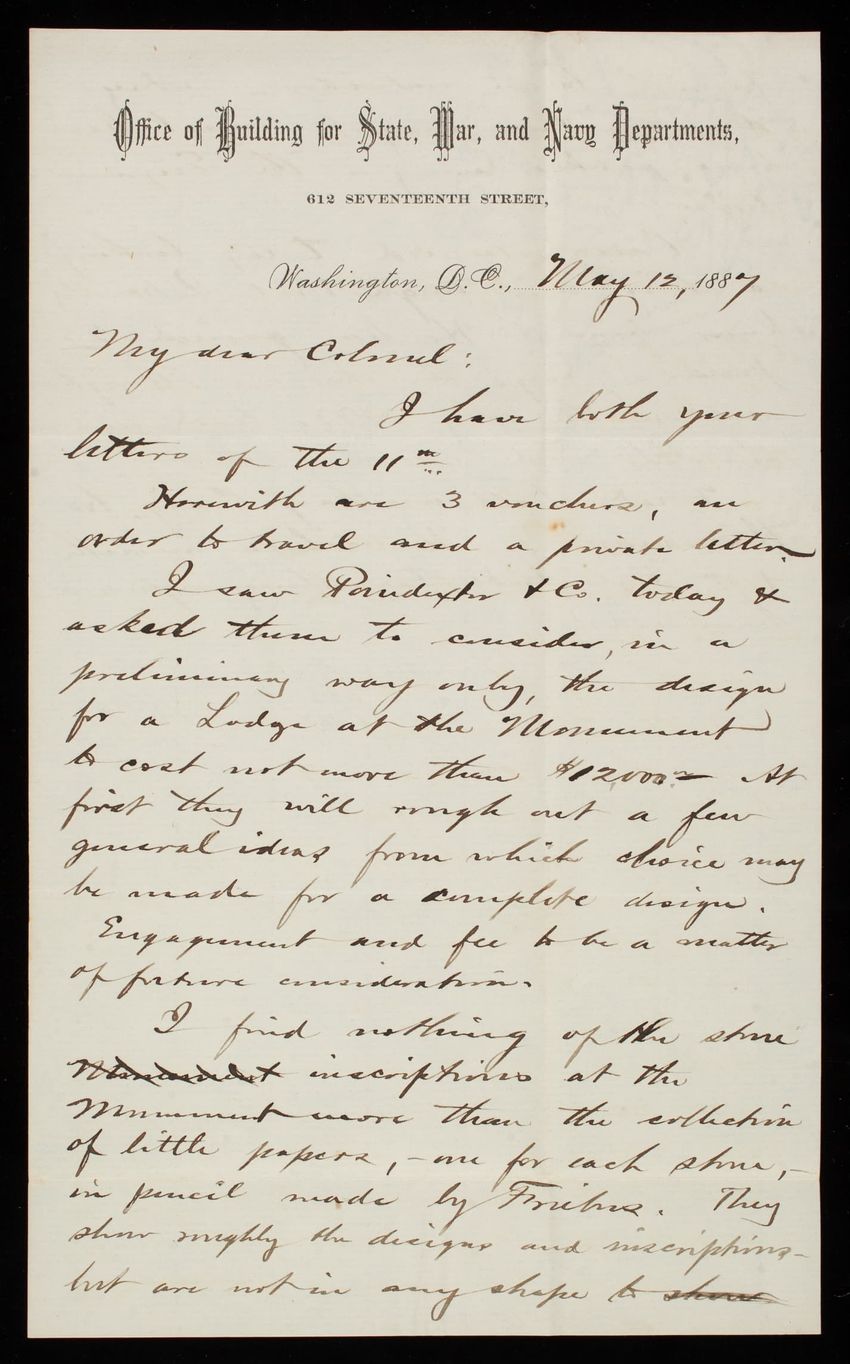 Office of Building for State, War, and Navy Departments,
612 SEVENTEENTH STREET,
Washington, D.C., May 12, 1887
My dear Colonel:
I have both your
letters of the 11th
Herewith are 3 vouchers, an
order to travel and a private letter.
I saw Poindexter & Co. today &
asked them to consider, in a
preliminary way only, the design
for a Lodge at the Monument
to cost not more than $12,000. At
first they will rough out a few
general ideas from which choice may
be made for a complete design.
Engagement and fee to be a matter
of future consideration.
I find nothing of the stone
Monument inscriptions at the
Monument more than the collection
of little papers, - one for each stone, -
in pencil made by Friebus. They
show roughly the designs and inscriptions -
but are not in any shape to show